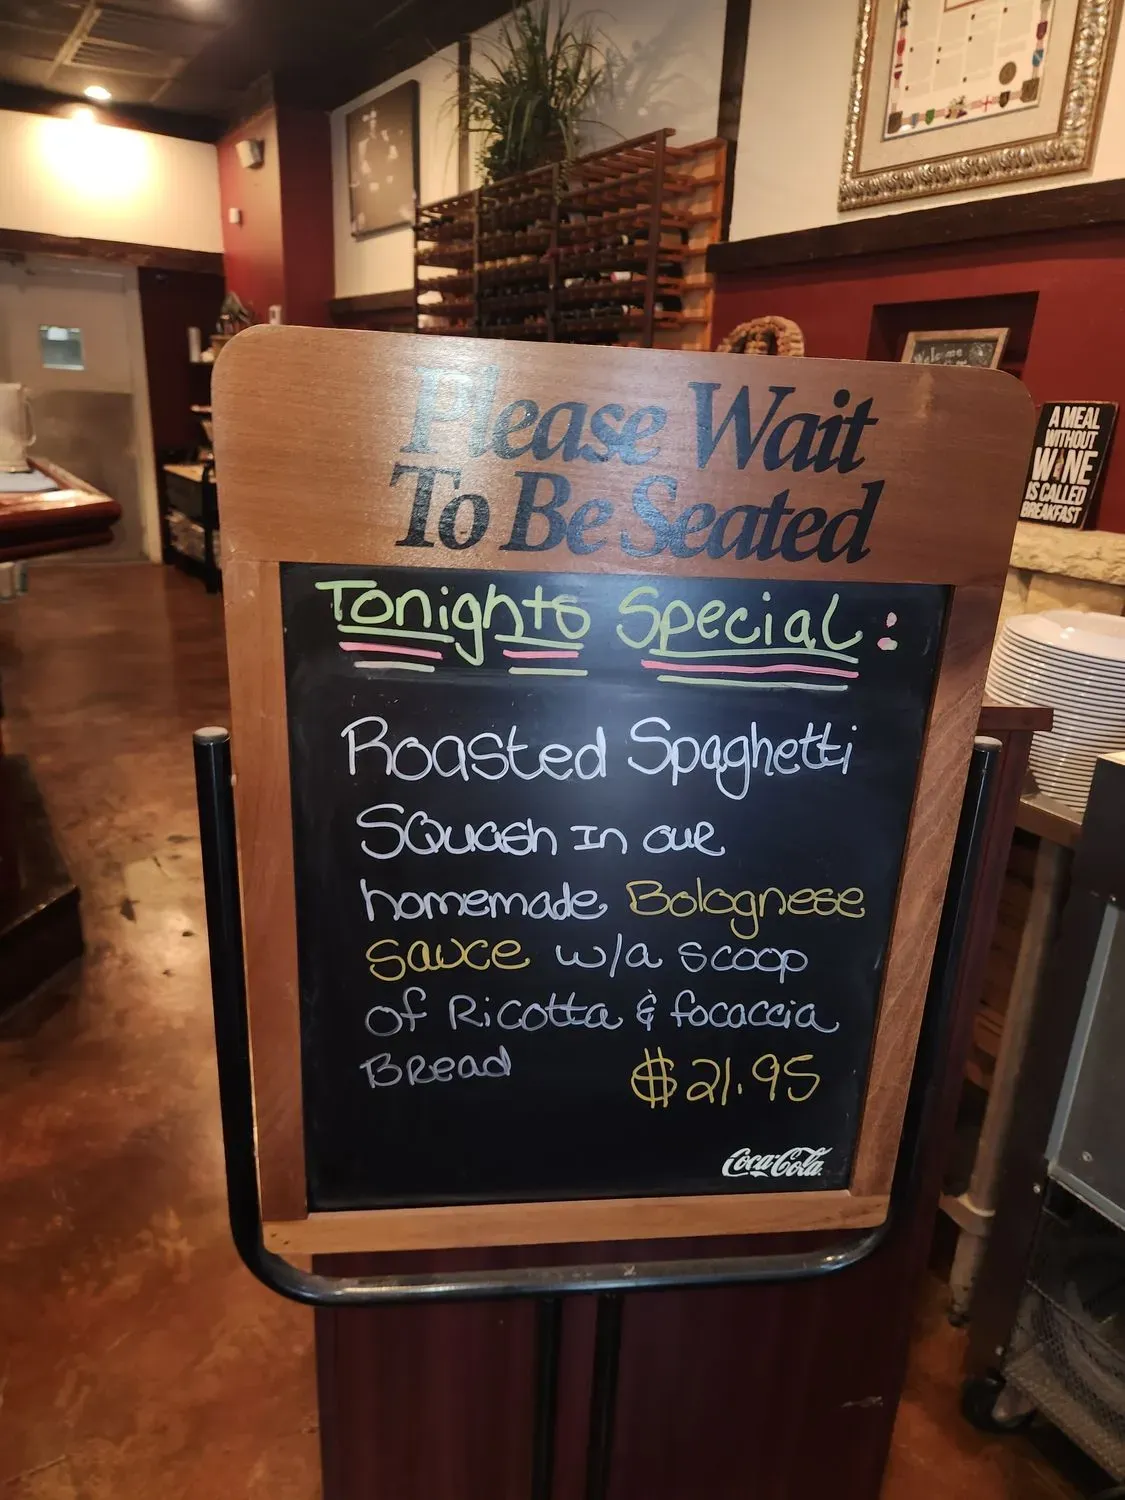 Please Wait
To Be Seated
Tonights Special:
Roasted Spaghetti
Squash In our
homemade Bolognese
Sauce w/a scoop
of Ricotta & focaccia
Bread $21.95
Coca-Cola
Welcome
A MEAL
WITHOUT
WINE
IS CALLED
BREAKFAST